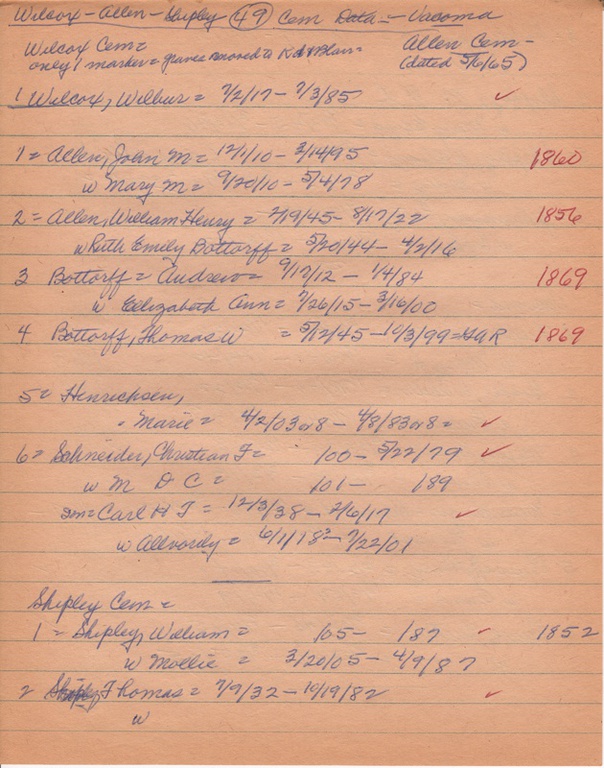 Wilcox-Allen-Shipley 49 Cem Data - Vacoma
Wilcox Cem =
only 1 marker = graves moved to K d Blair =
Allen Cem -
(dated 5/6/65)
1 Wilcox, Wilbur = 7/2/17 - 7/3/85 ✓
1 = Allen, John M = 12/1/10 - 3/14/95 1860
w Mary M = 9/20/10 - 5/4/78
2 = Allen, William Henry = 2/19/45 - 8/17/22 1856
w Ruth Emily Bottorff = 5/20/44 - 4/2/16
3 Bottorff = Andrew = 9/17/12 - 1/4/84 1869
w Elizabeth Ann = 7/26/15 - 3/16/00
4 Bottorff, Thomas W = 5/12/45 - 10/3/99 = GAR 1869
5 = Henricksen,
= Marie = 4/2/03 or 8 - 4/8/83 or 8 = ✓
6 = Schneider, Christian F = /00 - 5/22/79 ✓
w M D C = /01 - /89
Carl H F = 12/3/38 - 2/6/17 ✓
w = 6/1/18 - 7/22/01
Shipley Cem =
1 = Shipley, William = /05 - /87 ✓ 1852
w Mollie = 3/20/05 - 4/9/87
2 Thomas = 7/9/32 - 10/19/82 ✓
w